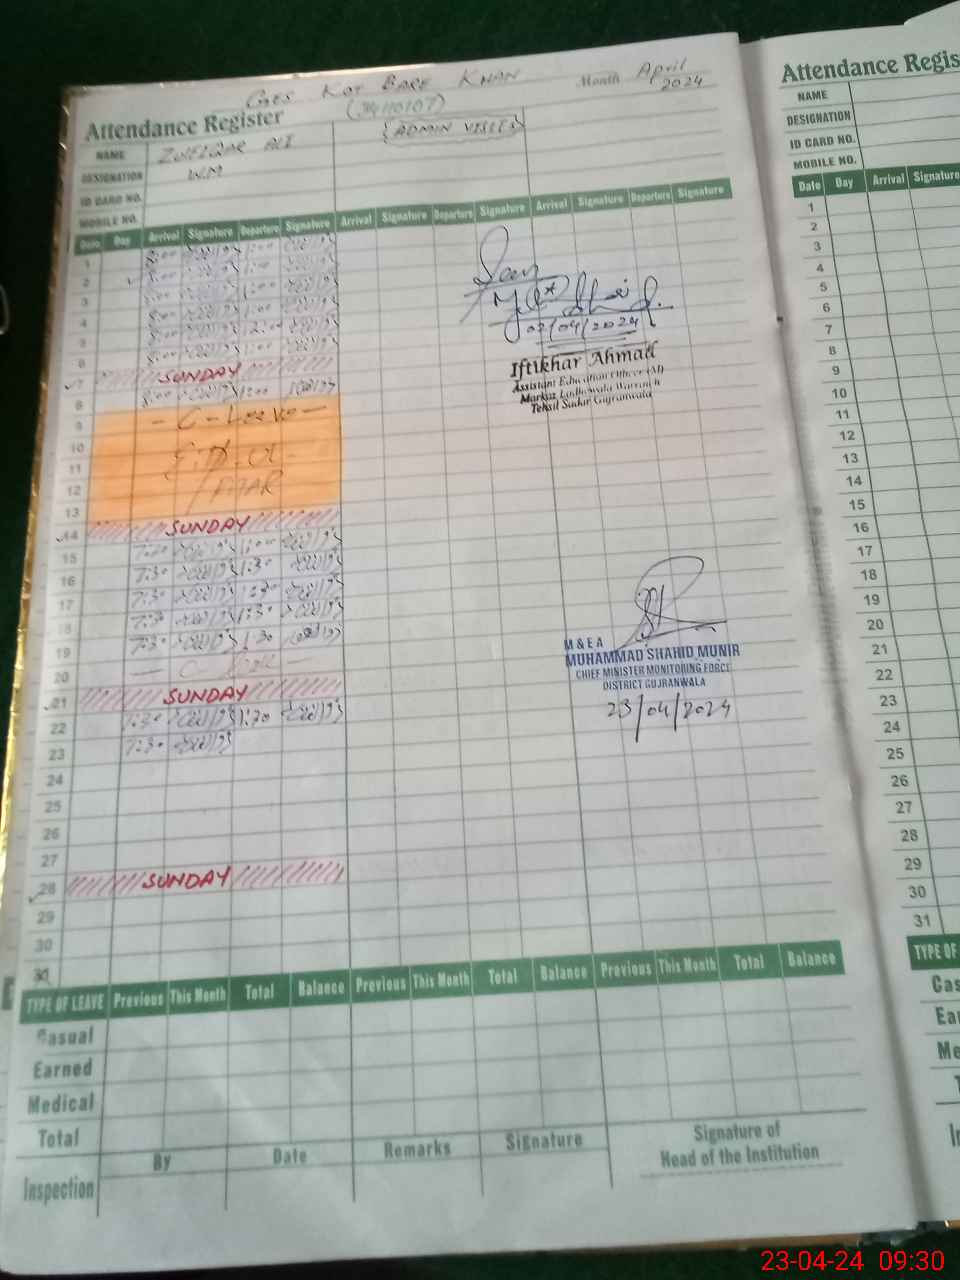 GES KOT BARE KHAN Month April 2024
Attendance Register (34110107)
{ADMIN VISITS}
NAME ZULFIQAR ALI
DESIGNATION W.M
ID CARD NO.
MOBILE NO.
Date Day Arrival Signature Departure Signature Arrival Signature Departure Signature Arrival Signature Departure Signature
1 8:00 1:00
2 8:00 1:00
3 8:00 1:00
4 8:00 1:00
5 8:00 12:00
6 8:00 1:00
7 SUNDAY
8 8:00 1:00
9 - C - Leave -
10
11
12
13
14 SUNDAY
15 7:30 1:00
16 7:30 1:30
17 7:30 1:30
18 7:30 1:30
19 7:30 1:30
20 - C -
21 SUNDAY
22 7:30 1:30
23 7:30
24
25
26
27
28 SUNDAY
29
30
31
Seen
02/04/2024
Iftikhar Ahmad
Assistant Education Officer (M)
Markaz Ladhewala Warraich
Tehsil Sadar Gujranwala
M & E A
MUHAMMAD SHAHID MUNIR
CHIEF MINISTER MONITORING FORCE
DISTRICT GUJRANWALA
23/04/2024
TYPE OF LEAVE Previous This Month Total Balance Previous This Month Total Balance Previous This Month Total Balance
Casual
Earned
Medical
Total
Inspection By Date Remarks Signature
Signature of
Head of the Institution
Attendance Regis
NAME
DESIGNATION
ID CARD NO.
MOBILE NO.
Date Day Arrival Signature
1
2
3
4
5
6
7
8
9
10
11
12
13
14
15
16
17
18
19
20
21
22
23
24
25
26
27
28
29
30
31
TYPE OF
Cas
Ear
Me
T
In
23-04-24 09:30